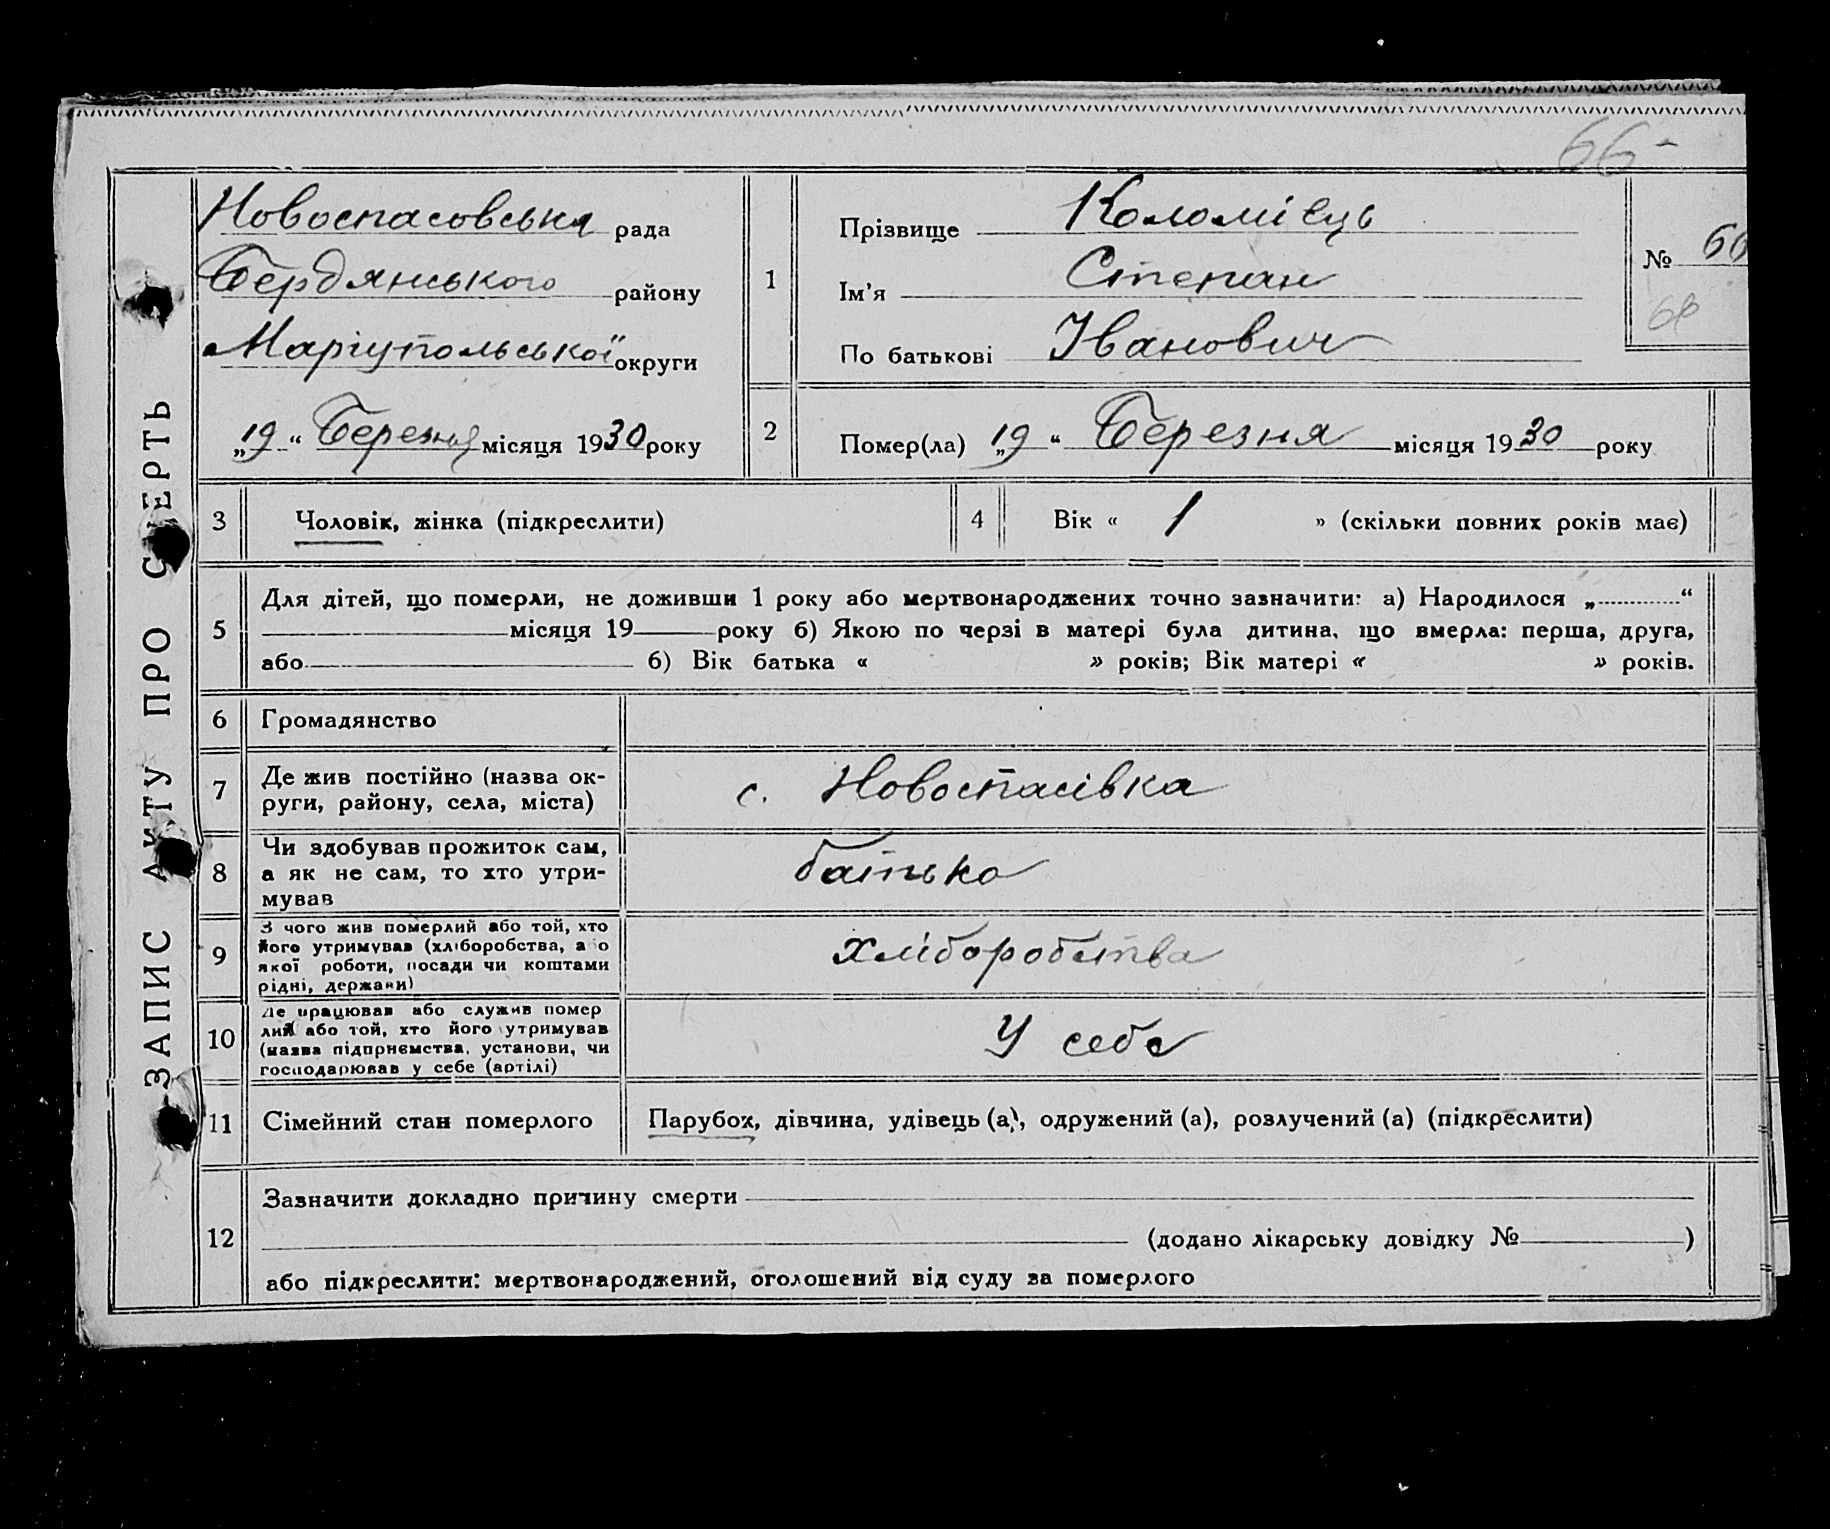 66-
Новоспасовська рада
Бердянського району
Маріупольської округи
„19“ Березня місяця 1930 року
1
Прізвище Коломієць
Ім'я Степан
По батькові Іванович
№ 66
68
2
Помер(ла) „19“ Березня місяця 1930 року
ЗАПИС АКТУ ПРО СМЕРТЬ
3 Чоловік, жінка (підкреслити)
4 Вік « 1 » (скільки повних років має)
5
Для дітей, що померли, не доживши 1 року або мертвонароджених точно зазначити: а) Народилося „ “
місяця 19 року б) Якою по черзі в матері була дитина, що вмерла: перша, друга,
або б) Вік батька « » років; Вік матері « » років.
6 Громадянство
7 Де жив постійно (назва ок-
руги, району, села, міста)
с. Новоспасівка
8 Чи здобував прожиток сам,
а як не сам, то хто утри-
мував
батько
9 З чого жив померлий або той, хто
його утримував (хліборобства, або
якої роботи, посади чи коштами
рідні, держави)
хліборобства
10 Де працював або служив помер
лий або той, хто його утримував
(назва підприємства, установи, чи
господарював у себе (артілі)
У себе
11 Сімейний стан померлого
Парубок, дівчина, удівець (а), одружений (а), розлучений (а) (підкреслити)
12
Зазначити докладно причину смерти
(додано лікарську довідку № )
або підкреслити: мертвонароджений, оголошений від суду за померлого